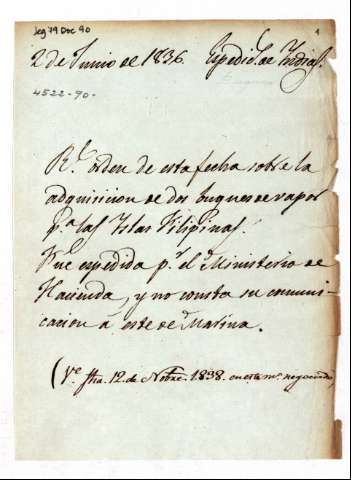 Leg 79 Doc 90
1
2 de Junio de 1836. Espedic.s de Indias.
4522-90-
R.l orden de esta fecha sobre la
adquisicion de dos buques de vapor
p.a las Islas Filipinas.
Fue espedida p.r el Ministerio de
Hacienda, y no consta su comuni-
cacion á este de Marina.
(V.e fha. 12 de Nobre. 1838. en este m.o negociado)